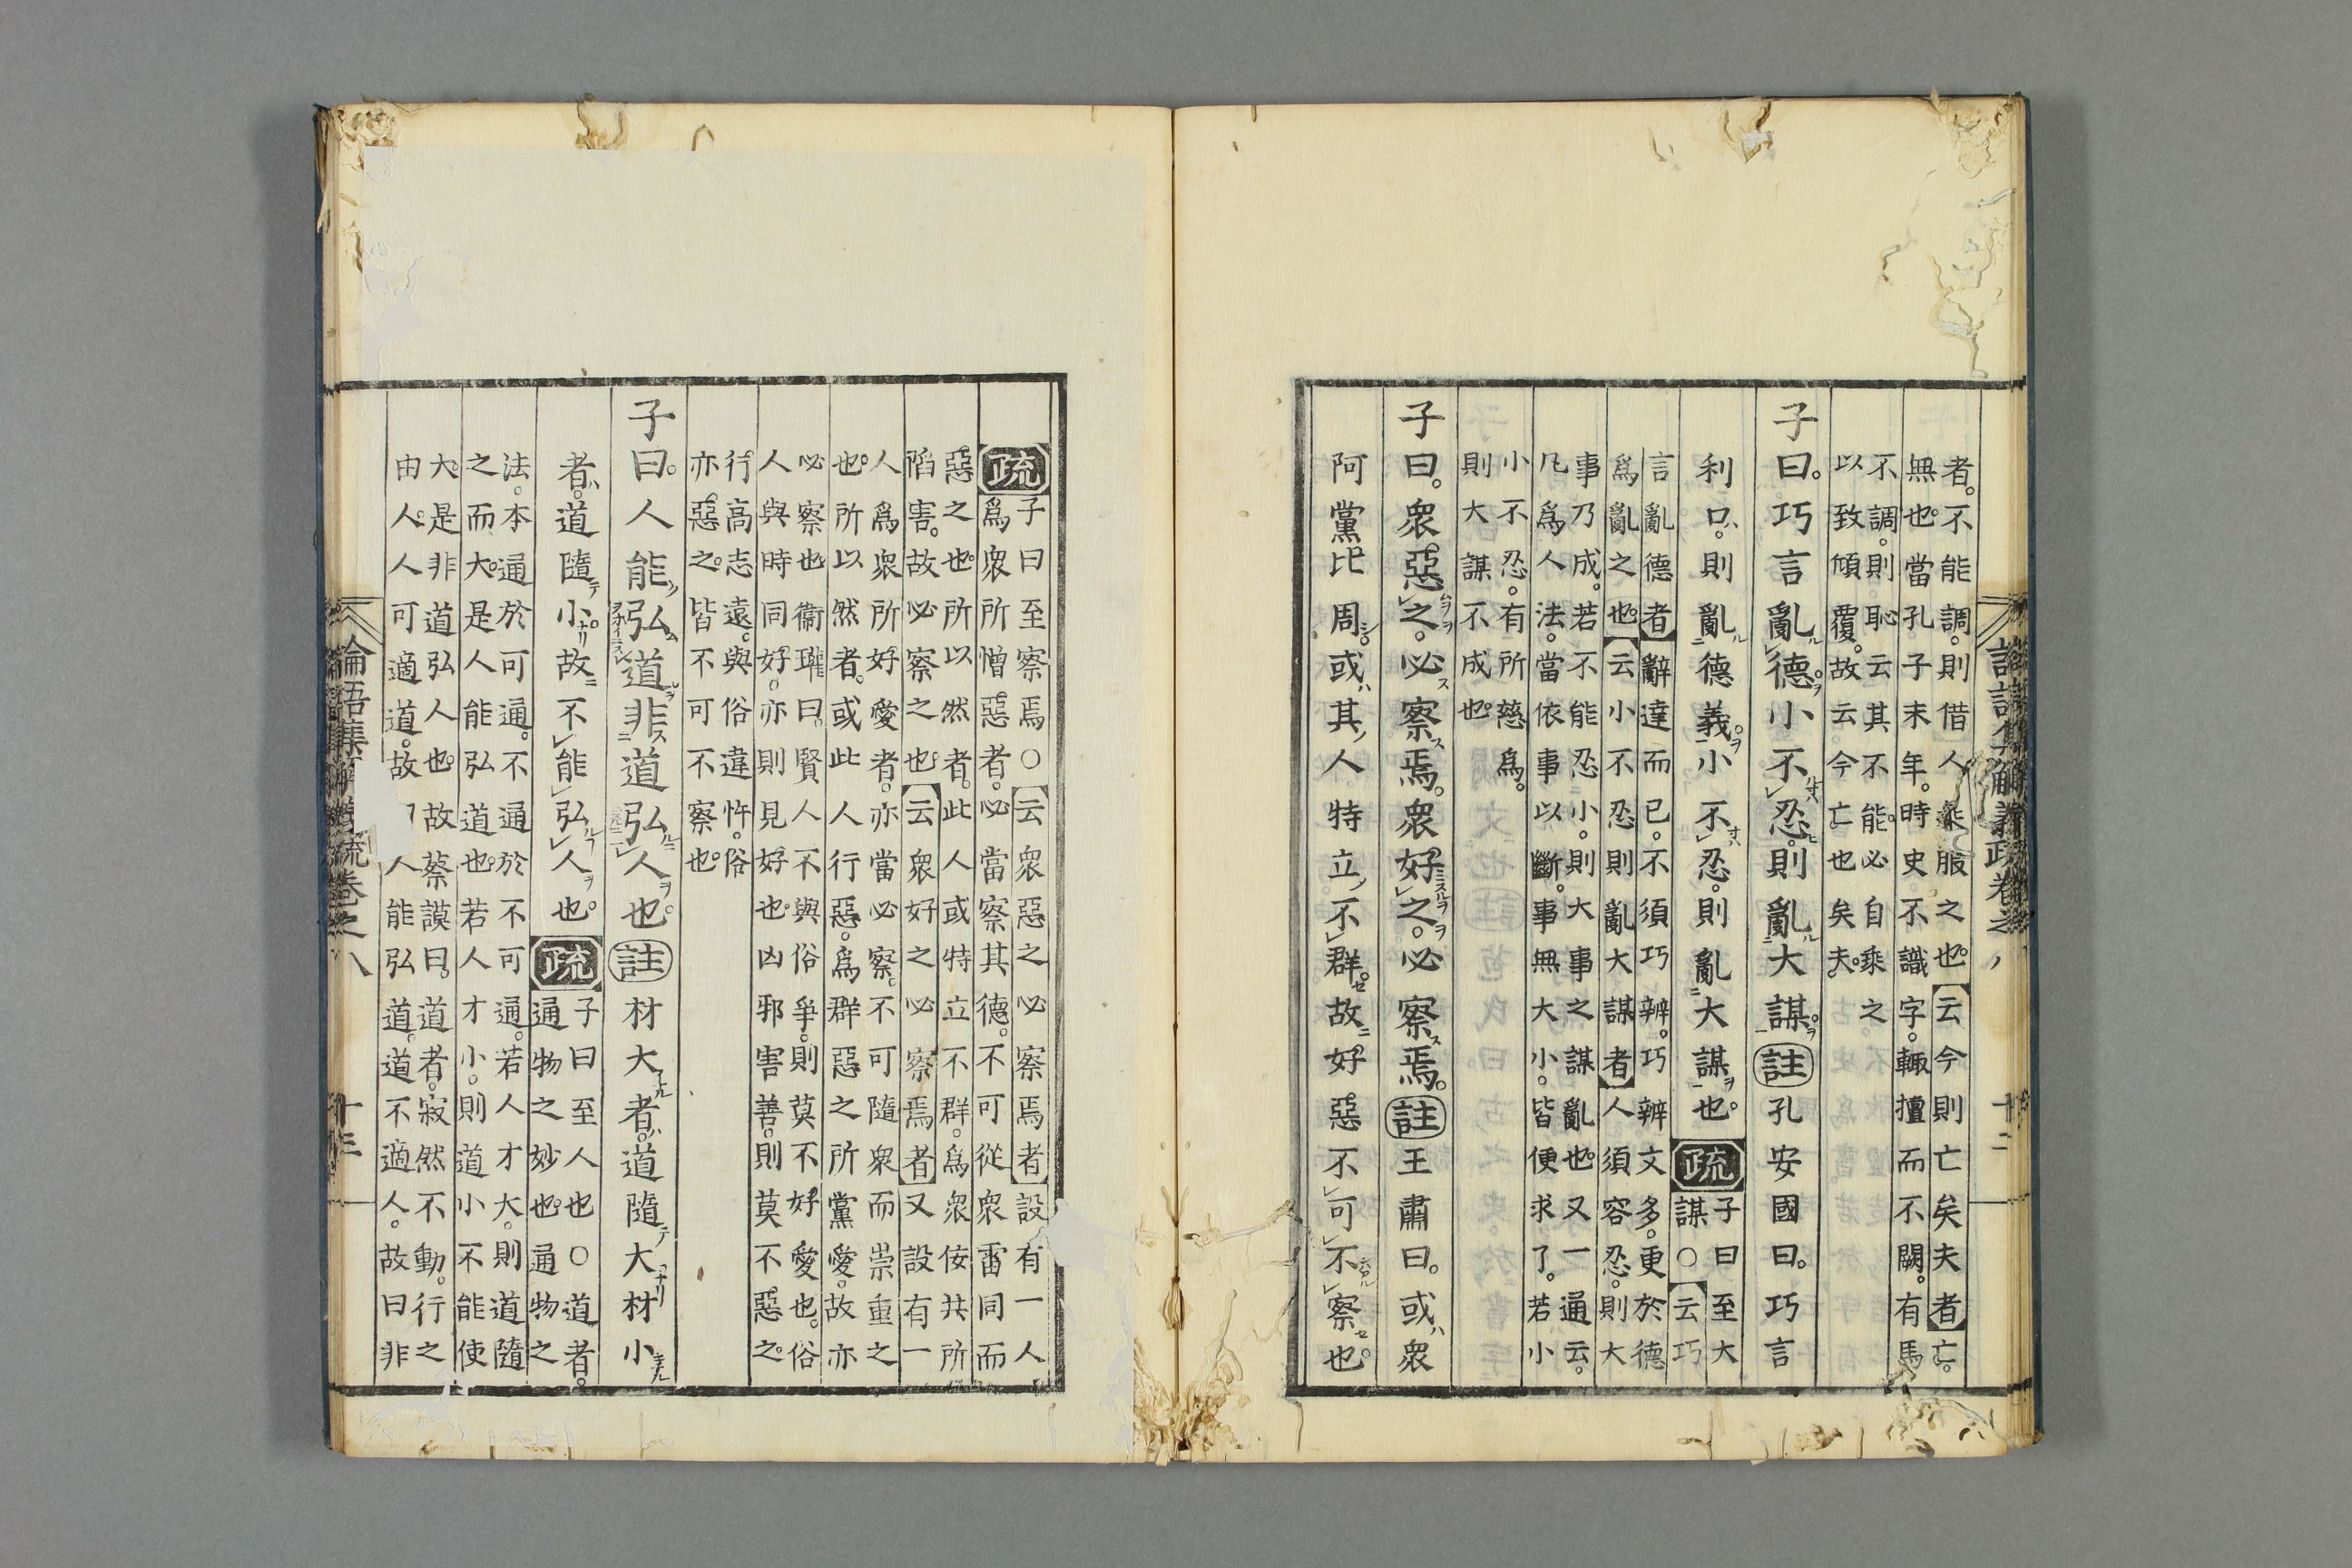 者。不能調。則借人乘服之也。云今則亡矣夫者亡。
無也。當孔子末年。時史。不識字。輒擅而不闕。有馬
不調。則恥云其不能。必自乘之
以致傾覆。故云今亡也矣夫。
子曰。巧言亂德小不忍。則亂大謀。註孔安國曰。巧言
利口。則亂德義。小不忍。則亂大謀也。疏
子曰至大
謀○云巧
言亂德者辭達而已。不須巧辨。巧辨文多。更於德
爲亂之也。云小不忍則亂大謀者人須容忍。則大
事乃成。若不能忍小。則大事之謀亂也。又一通云。
凡爲人法。當依事以斷。事無大小。皆便求了。若小
小不忍。有所慈爲。
則大謀不成也。
子曰。衆惡之。必察焉。衆好之。必察焉。註王肅曰。或衆
阿黨比周。或其人特立不群。故好惡不可不察也。
疏
子曰至察焉○云衆惡之必察焉者設有一人
爲衆所憎惡者。必當察其德。不可從衆雷同而
惡之也。所以然者。此人或特立不群。爲衆佞共所
陷害。故必察之也。云衆好之必察焉者又設有一
人爲衆所好愛者。亦當必察。不可隨衆而崇重之
也。所以然者。或此人行惡。爲群惡之所黨愛。故亦
必察也衞瓘曰。賢人不與俗爭。則莫不好愛也。俗
人與時同好。亦則見好也。凶邪害善。則莫不惡之。
行高志遠。與俗違忤。俗
亦惡之。皆不可不察也。
子曰。人能弘道非道弘人也。註材大者。道隨大材小
者。道隨小故不能弘人也。疏
子曰至人也○道者。
通物之妙也。通物之
法。本通於可通。不通於不可通。若人才大。則道隨
之而大。是人能弘道也。若人才小。則道小不能使
大。是非道弘人也。故蔡謨曰。道者。寂然不動。行之
由人。人可適道。故人能弘道。道不適人。故曰非
論語集解義疏卷之八
十三